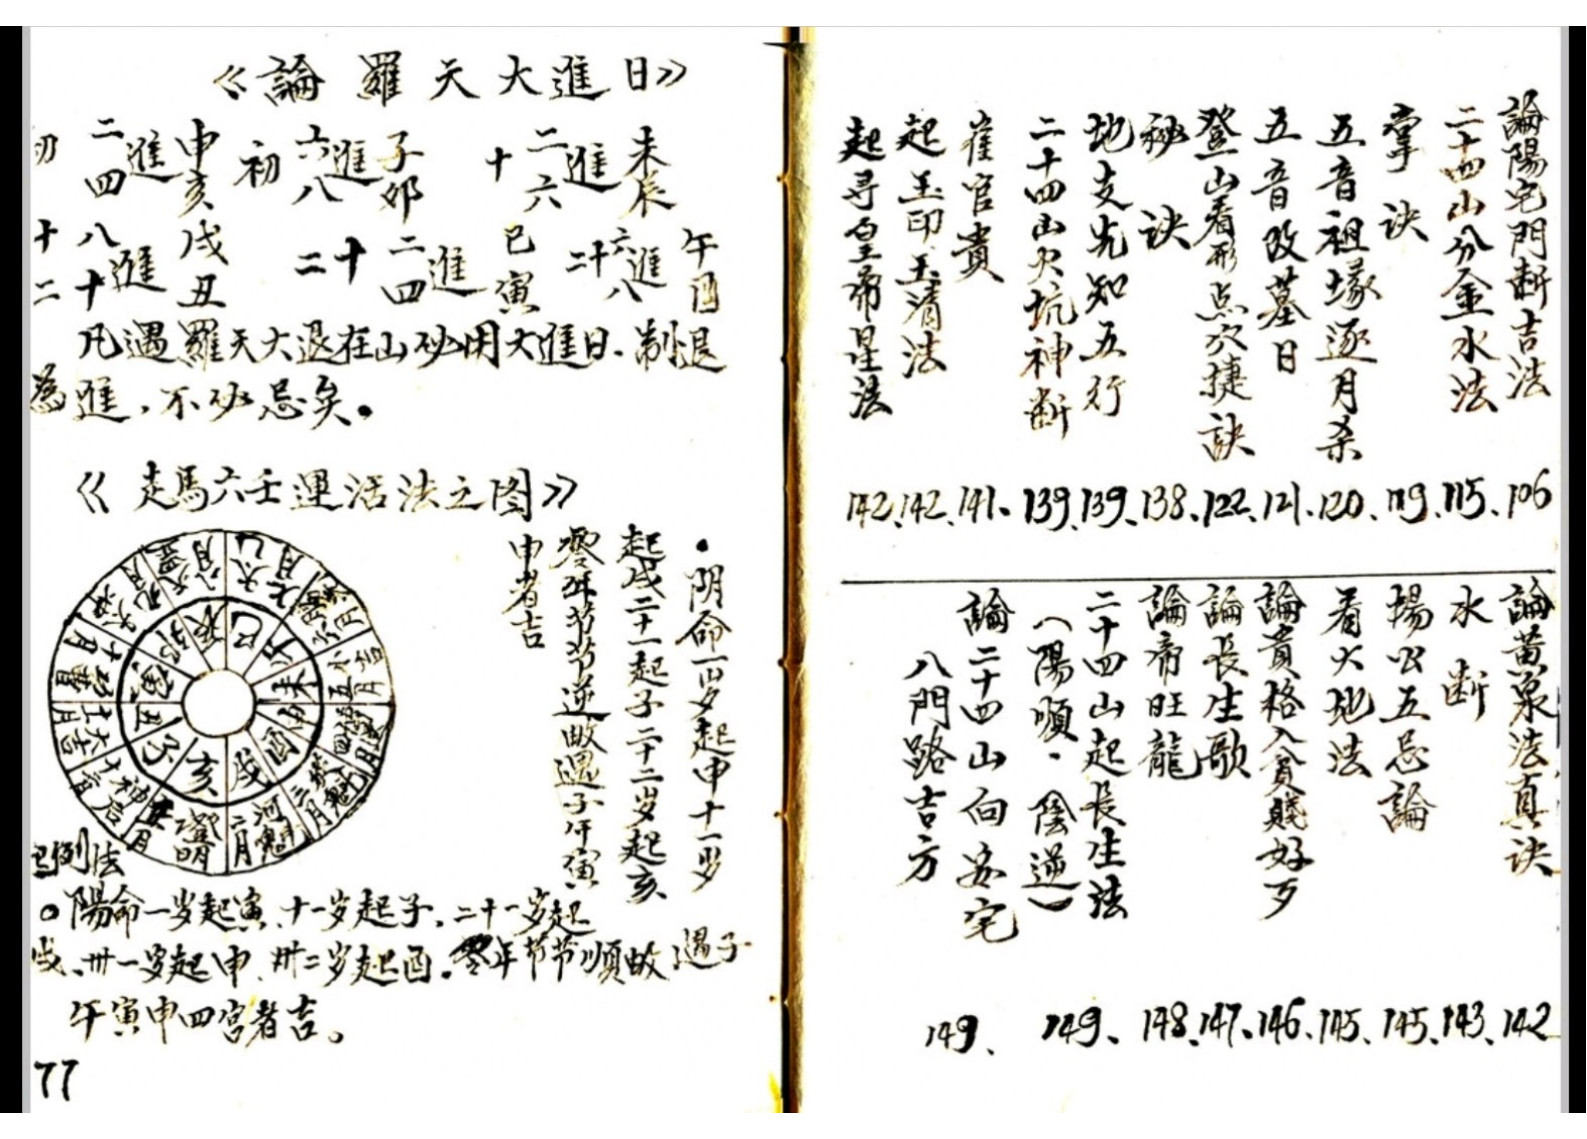 論陽宅門斷吉法 106
二十四山分金水法 115、
掌訣 119、
五音祖塚逐月杀 120、
五音改墓日 121、
登山看形点穴捷訣 122、
秘訣 138、
地支先知五行 139、
二十四山火坑神断 139、
崔官貴 141、
起玉印玉清法 142、
起寻皇帝星法 142、
論黄泉法真决 142
水斷 143、
揚公五忌論 145、
看火地法 145、
論貴格入貧賤好歹 146、
論長生歌 147、
論帝旺龍 148、
二十四山起長生法
(陽順·陰逆) 149、
論二十四山向安宅
八門路吉方 149、
《論羅天大進日》
未辰進二六十
午酉進六八二十
子卯進六八初
巳寅進二四十二
申亥進二四初
戌丑進八十十二
凡遇羅天大退在山必用大進日、制退
為進，不必忌矣。
《走馬六壬運活法之图》
·阴命一岁起申十一岁
起戌二十一起子二十二岁起亥
零年节节逆做遇子午寅
申者吉
子 丑 寅 卯 辰 巳 午 未 申 酉 戌 亥
例法
○陽命一岁起寅、十一岁起子、二十一岁起
戌、卅一岁起申、卅二岁起酉。零年节节順做遇子
午寅申四宫者吉。
77